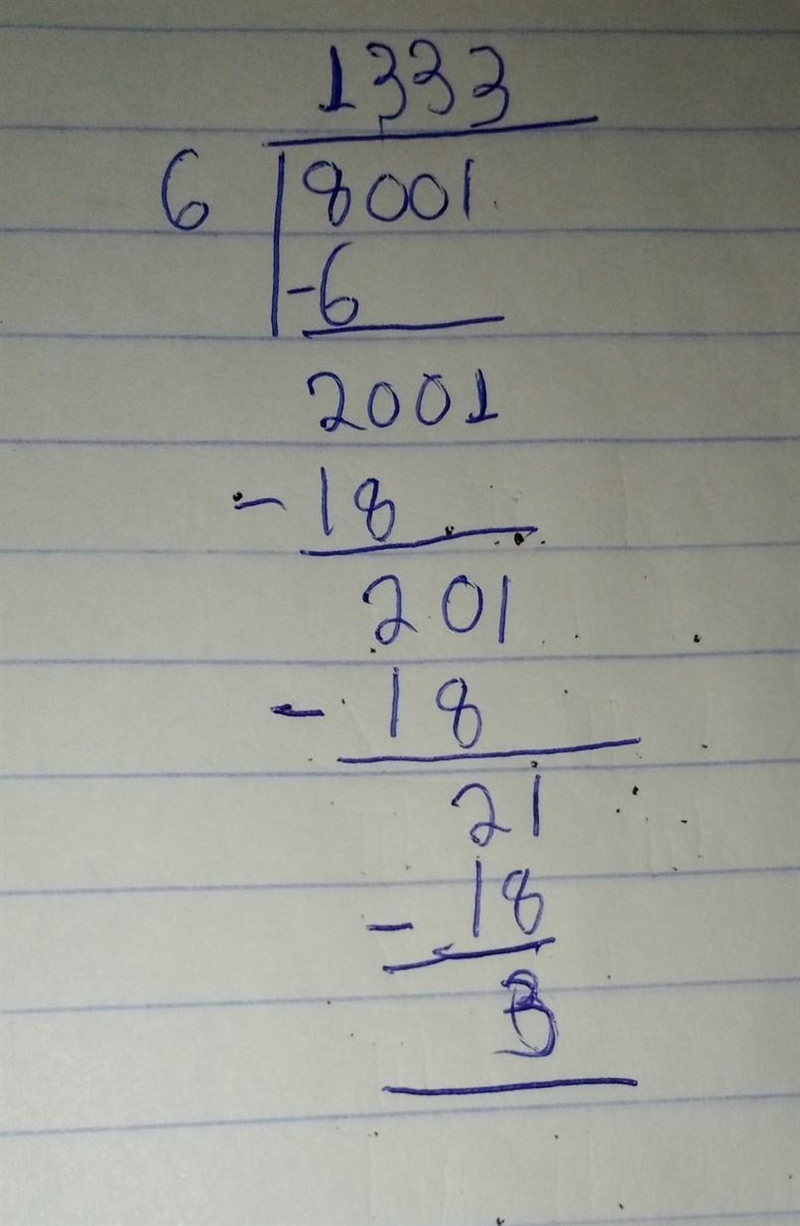 1333
6 8001
-6
2001
- 18
201
- 18
21
- 18
3